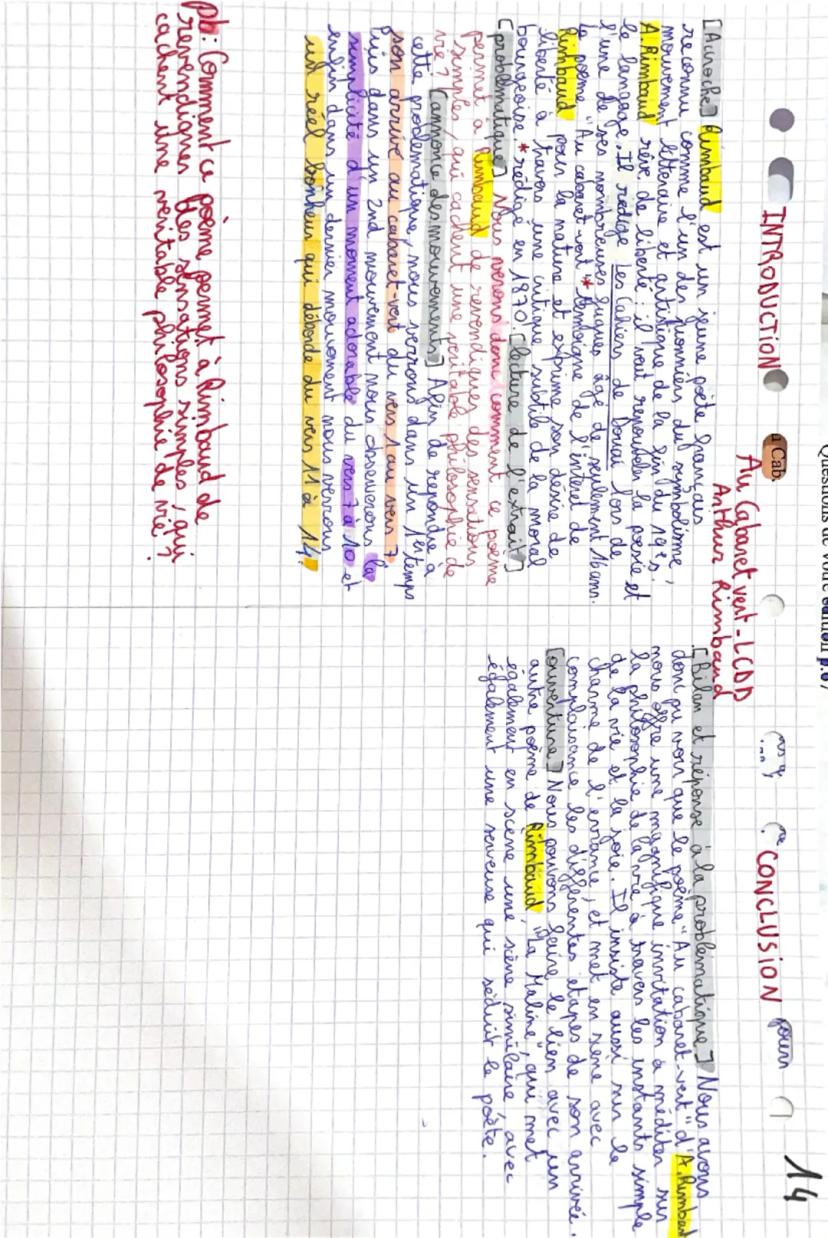 Questions de votre édition p.67
14
INTRODUCTION
Au Cabaret vert - LCDD
Arthur Rimbaud
[Accroche] Rimbaud est un jeune poète français
reconnu comme l'un des pionniers du symbolisme,
mouvement littéraire et artistique de la fin du 19e s.
A.Rimbaud rêve de liberté : il veut renouveler la poésie et
le langage. Il rédige Les Cahiers de Douai lors de
l'une de ses nombreuses fugues, âgé de seulement 16 ans.
Le poème "Au cabaret-vert"* témoigne de l'intéret de
Rimbaud pour la nature et exprime son désire de
liberté à travers une critique subtile de la moral
bourgeoise *rédigé en 1870 [lecture de l'extrait]
[problématique] Nous verons donc comment ce poème
permet à Rimbaud de revendiques des sensations
simples, qui cachent une véritable philosophie de
vie ? [annonce des mouvements] Afin de répondre à
cette problématique, nous verrons dans un 1er temps
son arrivé au cabaret-vert du vers 1 au vers 7
Puis dans un 2nd mouvement nous observerons la
simplicité d'un moment adorable du vers 7 à 10 et
enfin dans un dernier mouvement nous verrons
un réel bonheur qui déborde du vers 11 à 14.
Pb: Comment ce poème permet à Rimbaud de
revendiques des sensations simples, qui
cachent une véritable philosophie de vie ?
CONCLUSION
[Bilan et réponse à la problématique] Nous avons
donc pu voir que le poème "Au cabaret-vert" d'A.Rimbaud
nous offre une magnifique invitation à méditer sur
la philosophie de la vie à travers les instants simple
de la vie et la joie. Il insiste aussi sur le
charme de l'enfance, et met en scène avec
complaisance les différentes étapes de son arrivée.
[ouverture] Nous pouvons faire le lien avec un
autre poème de Rimbaud, "La Maline", qui met
également en scène une scène similaire, avec
également une serveuse qui séduit le poète.